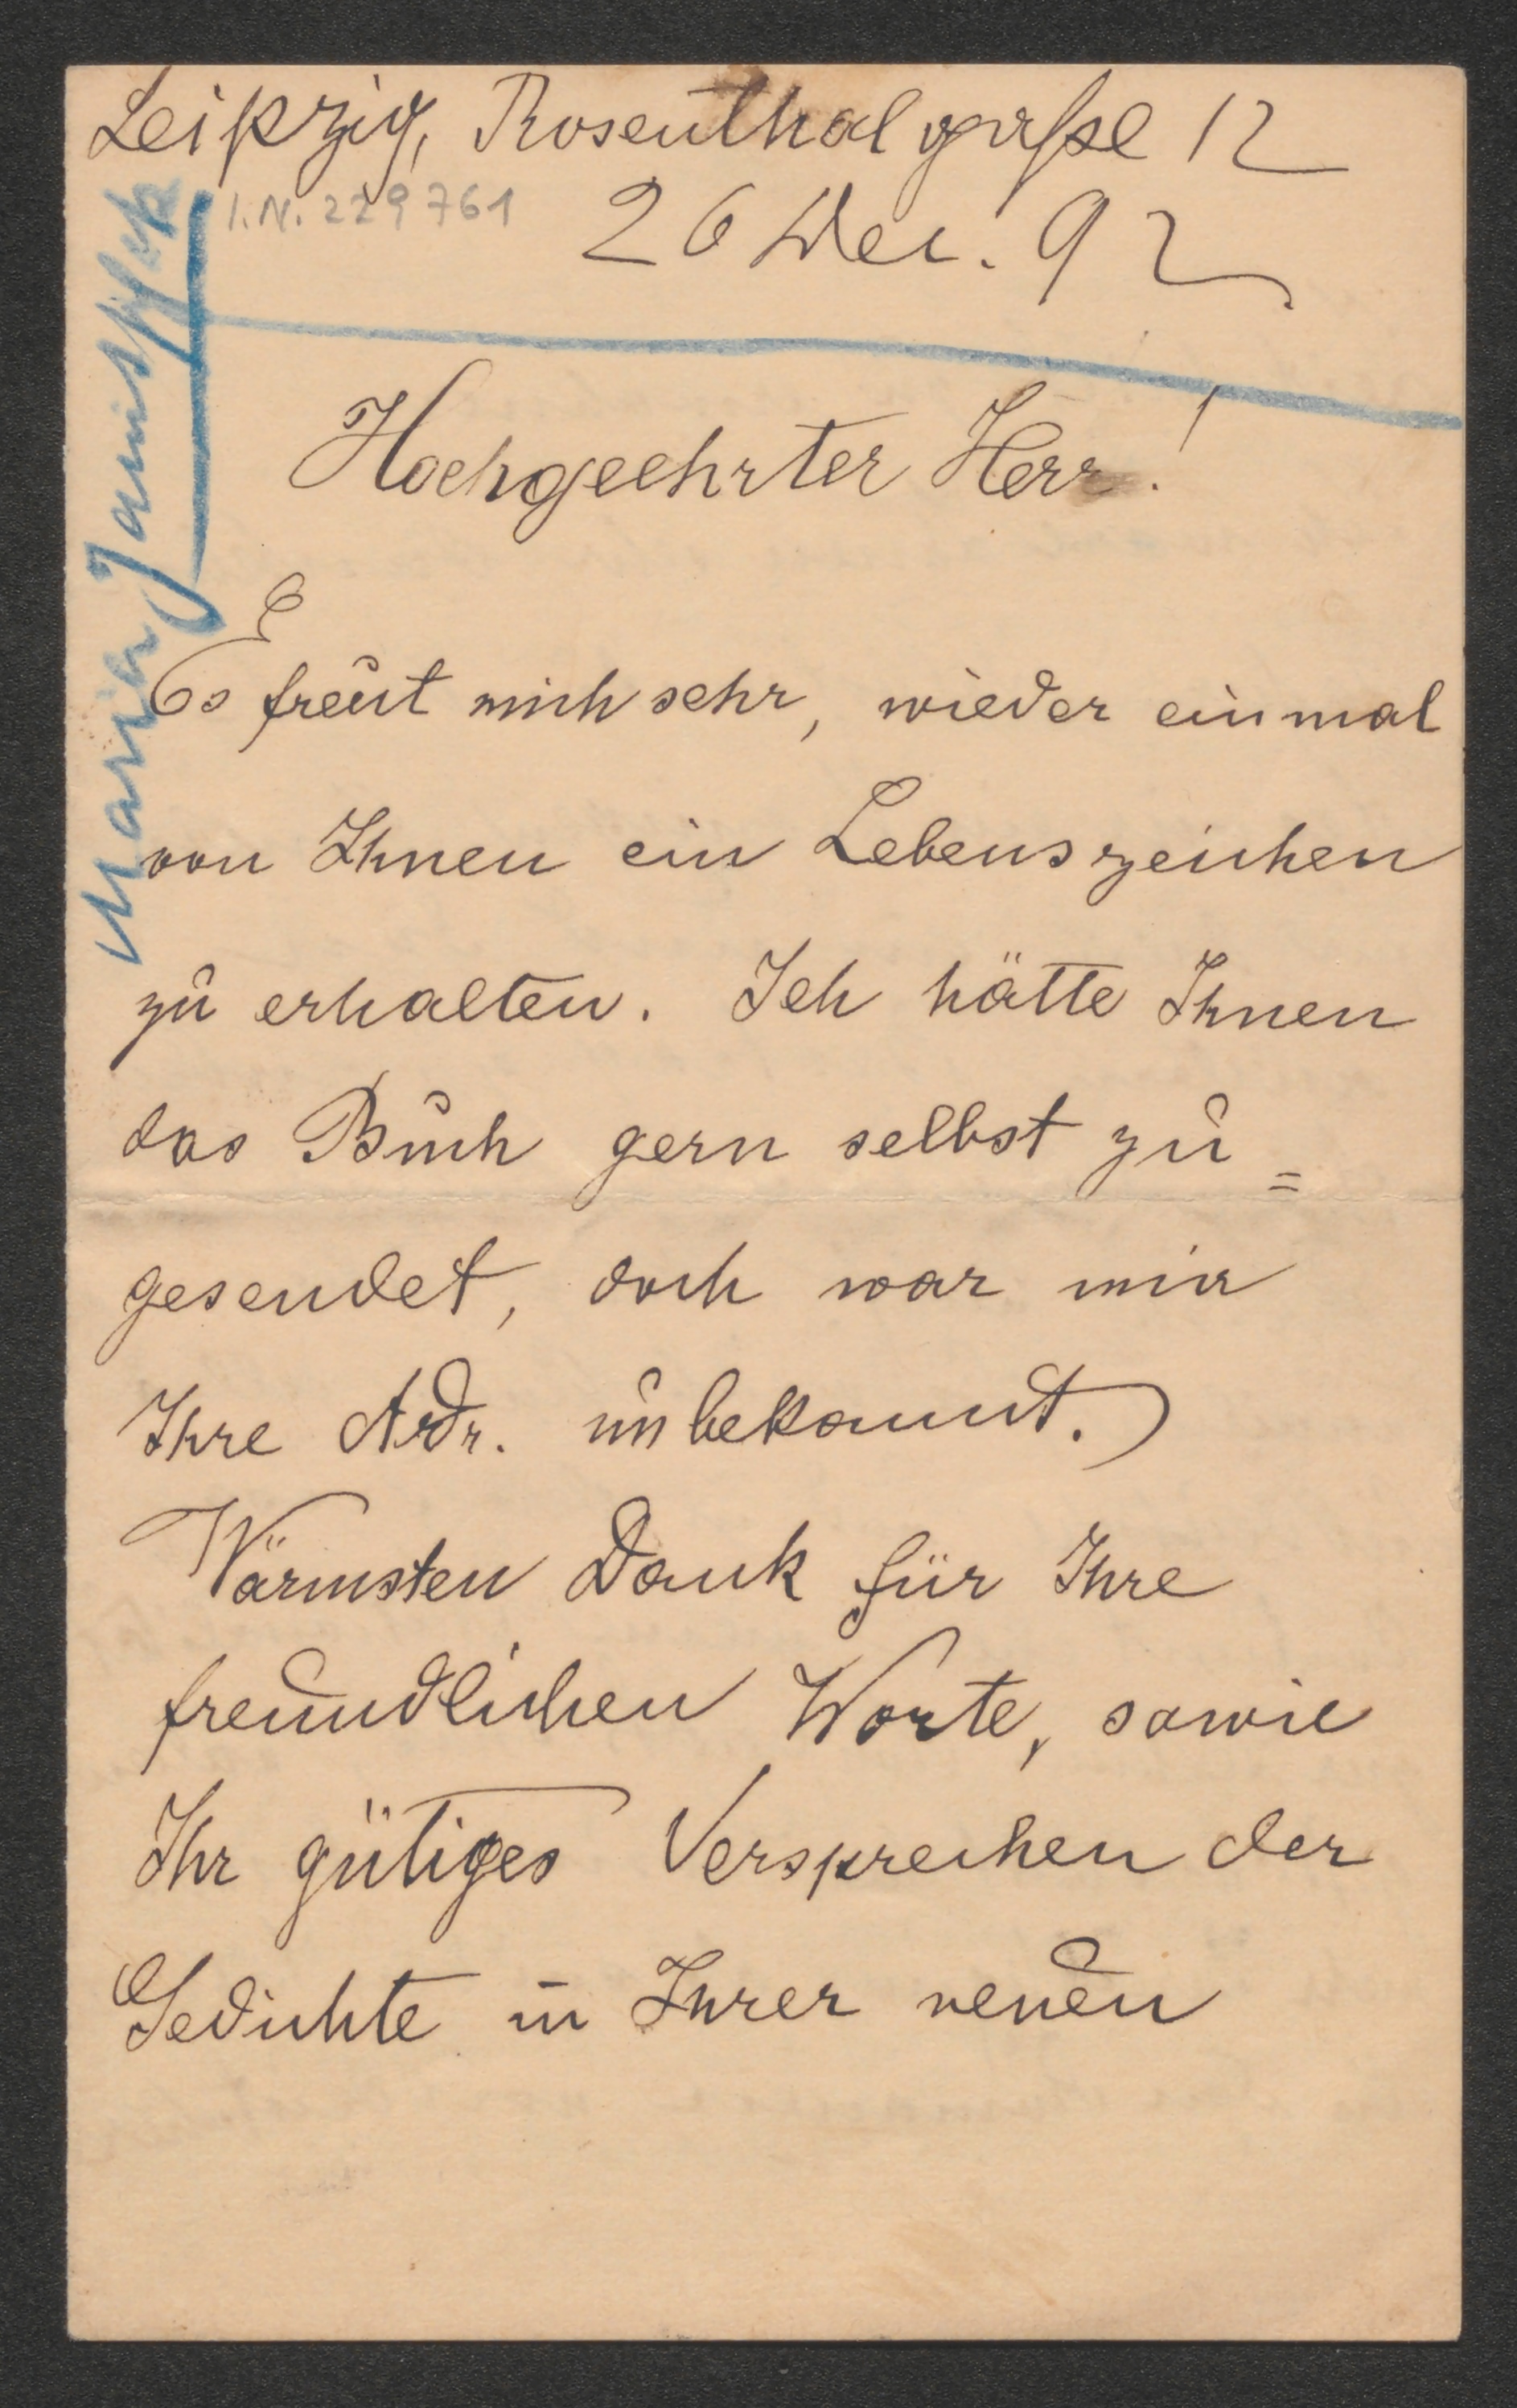 Leipzig, Rosenthalgasse 12
I.N. 229761
26 Dec. 92
Maria Janitschek
Hochgeehrter Herr!
Es freut mich sehr, wieder einmal
von Ihnen ein Lebenszeichen
zu erhalten. Ich hätte Ihnen
das Buch gern selbst zu=
gesendet, doch war mir
Ihre Adr. unbekannt.)
Wärmsten Dank für Ihre
freundlichen Worte, sowie
Ihr gütiges Versprechen der
Gedichte in Ihrer neuen